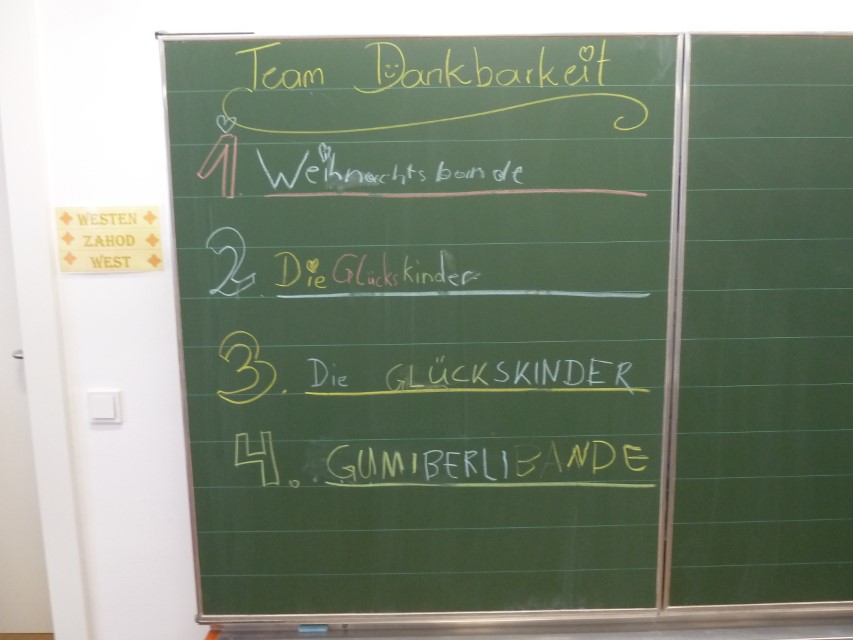 Team Dankbarkeit
1. Weihnachtsbande
2. Die Glückskinder
3. Die GLÜCKSKINDER
4. GUMIBERLIBANDE
WESTEN
ZAHOD
WEST